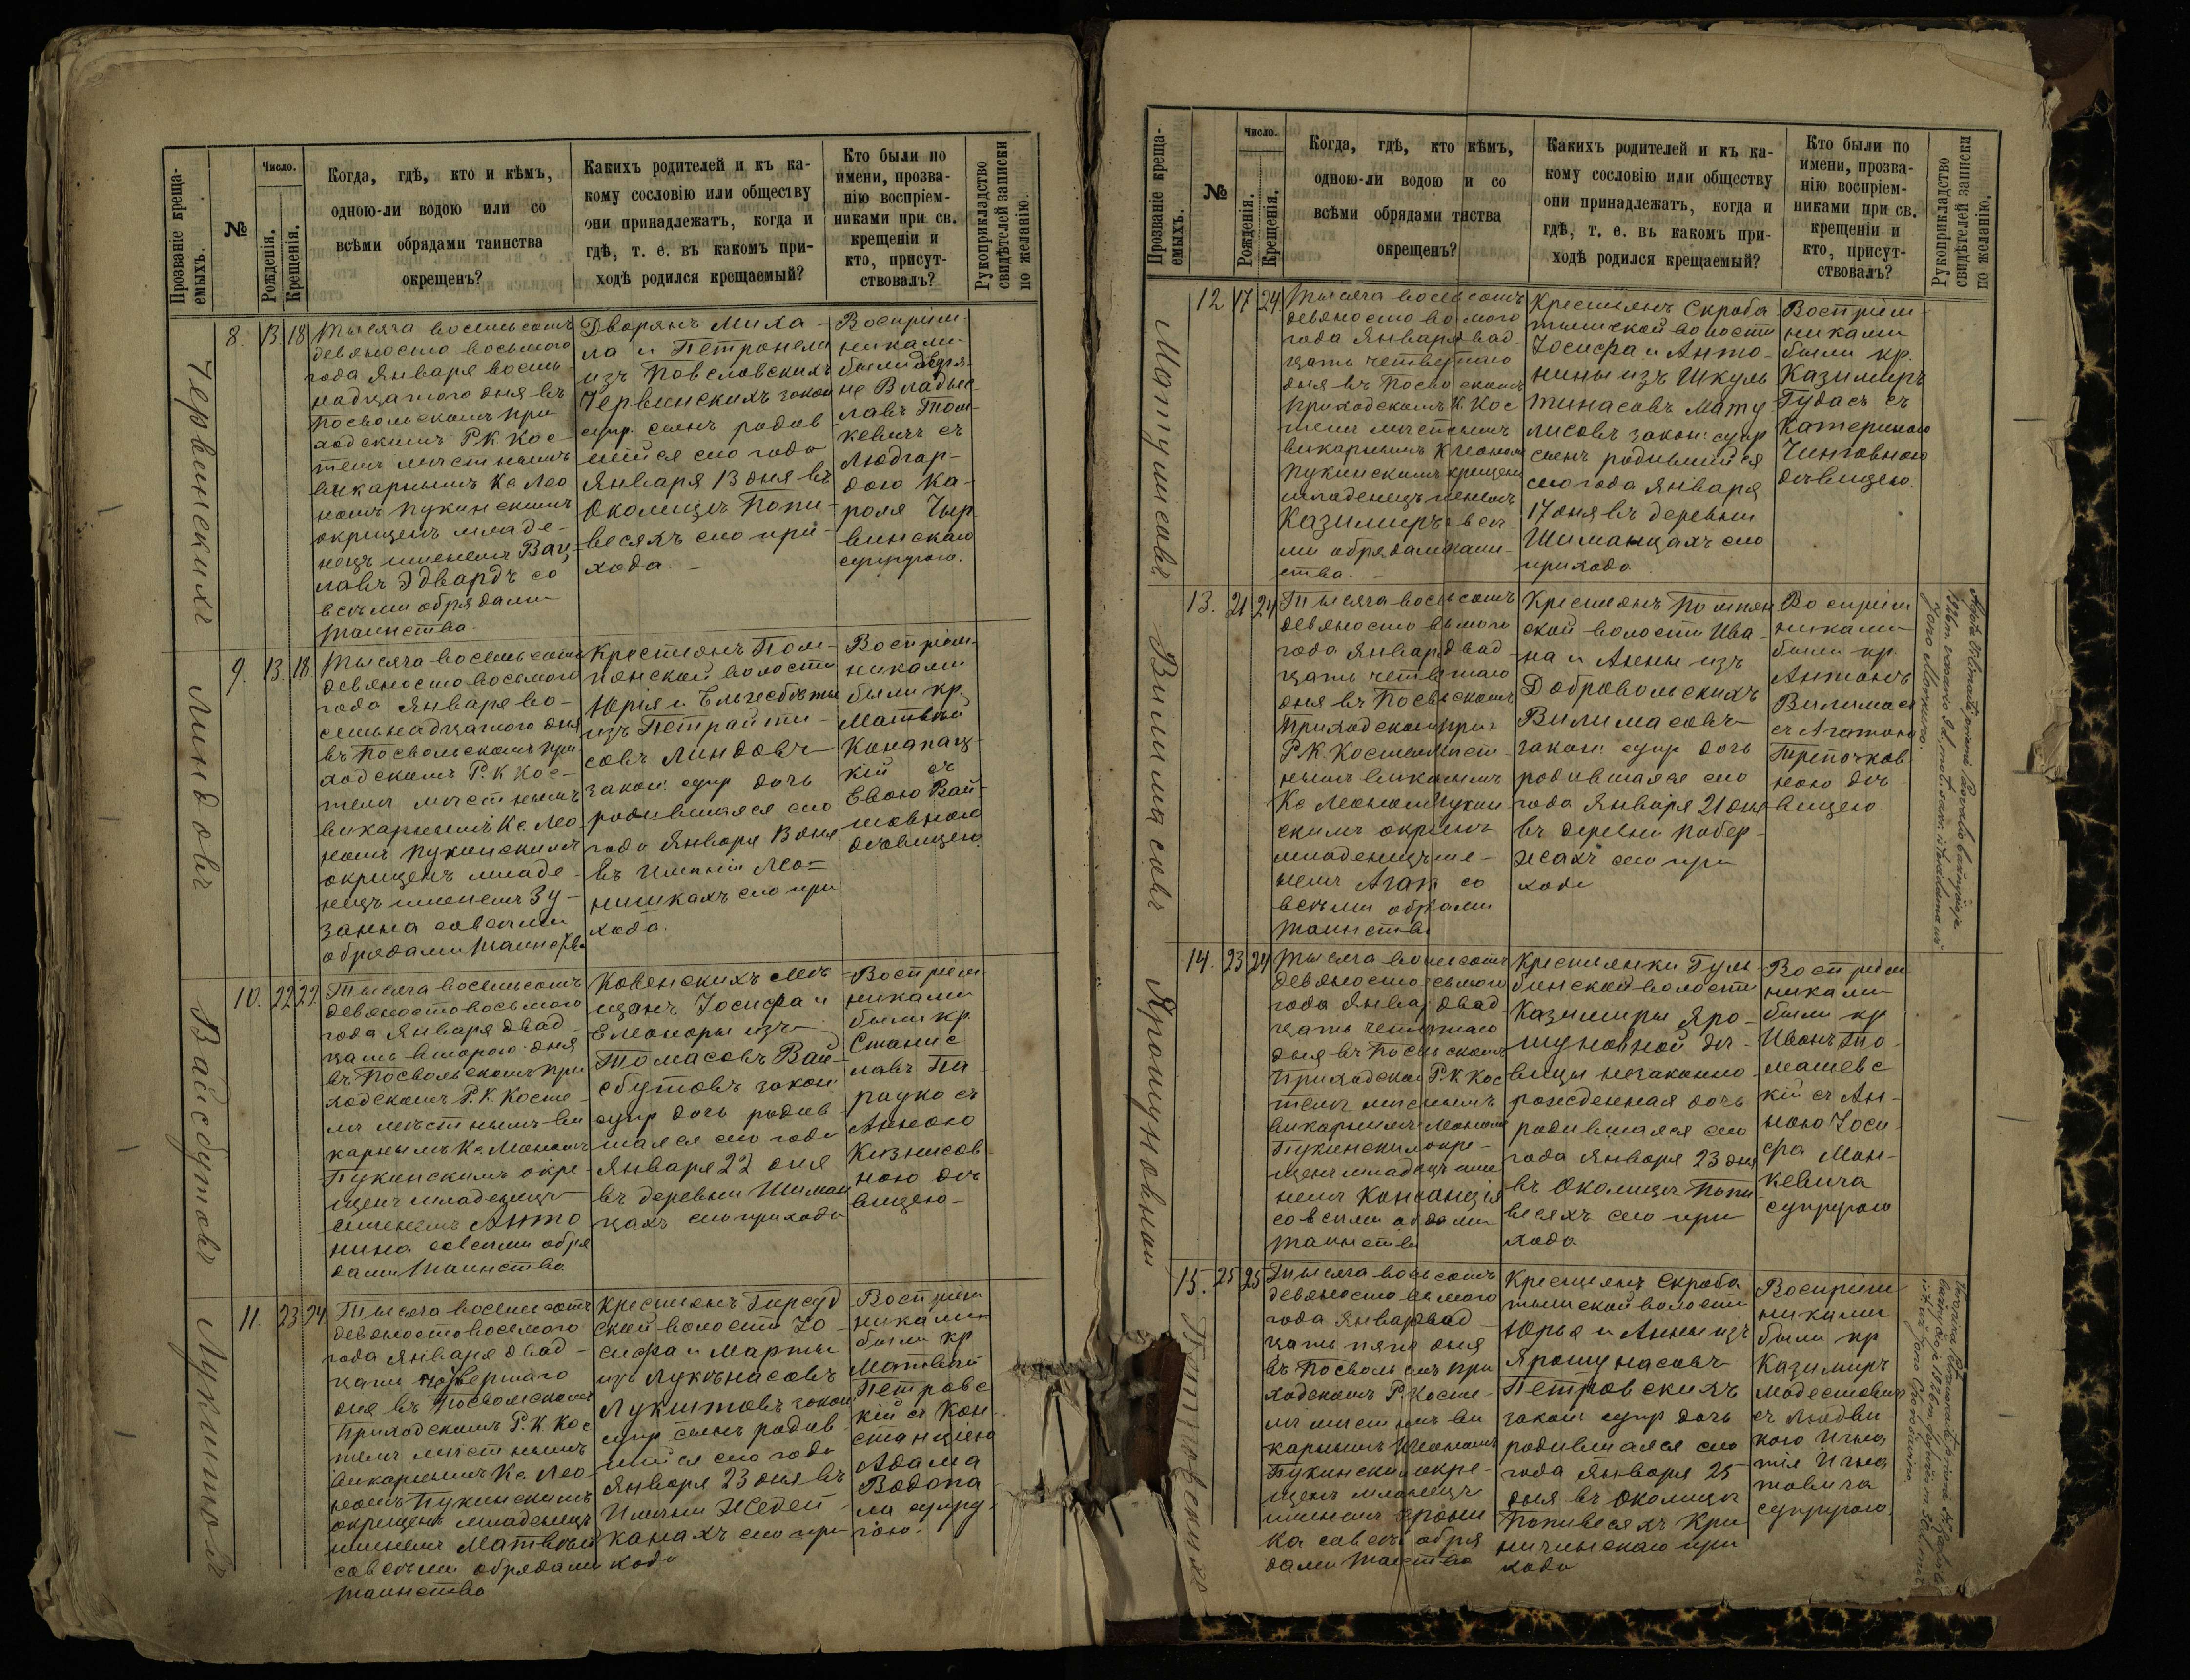 Прозваніе креща-
емыхъ.
№
Число.
Рожденія.
Крещенія.
Когда, гдѣ, кто и кѣмъ,
одною-ли водою или со
всѣми обрядами таинства
окрещенъ?
Какихъ родителей и къ ка-
кому сословію или обществу
они принадлежатъ, когда и
гдѣ, т. е. въ какомъ при-
ходѣ родился крещаемый?
Кто были по
имени, прозва-
нію воспріем-
никами при св.
крещеніи и
кто, присут-
ствовалъ?
Рукоприкладство
свидѣтелей записки
по желанію.
Червинскихъ
8. 13. 18
Тысяча восемьсотъ
девяносто восьмого
года Января восем-
надцатого дня въ
Посвольскомъ при
ходскомъ Р.К Кос-
телѣ мѣстнымъ
викарнымъ Кс Лео
номъ Пукинскимъ
окрещенъ младе-
нецъ именемъ Вац
лавъ Эдвардъ со
всѣми обрядами
таинства.
Дворянъ Миха-
ла и Петронели
изъ Повсловскихъ
Червинскихъ закон
супр. сынъ родив
шійся сего года
Января 13 дня въ
Околицѣ Попи-
весяхъ сего при-
хода.
Воспріем-
никами
были дворя-
не Владис
лавъ Том-
кевичъ съ
Людгар-
дою Ка-
роля Чыр
винскаго
супругою.
Линдовъ
9. 13. 18
Тысяча восемьсотъ
девяносто восьмого
года Января во-
семьнадцатого дня
въ Посвольскомъ при
ходскомъ Р.К Кос-
телѣ мѣстнымъ
викарнымъ Кс Лео
номъ Пукинскимъ
окрещенъ младе-
нецъ именемъ Зу-
занна со всѣми
обрядами таинства
Крестьянъ Пом-
пянской волости
Юрія и Ельжбѣты
изъ Петрайти-
совъ Линдовъ
закон: супр дочь
родившаяся сего
года Января 13 дня
въ Имѣніи Лео-
нишкахъ сего при
хода.
Воспріем-
никами
были кр.
Матвѣй
Канапац-
кій съ
Евою Вай-
шовною
дѣвицею
Вайсбутовъ
10. 22 22
Тысяча восемьсотъ
девяносто восьмого
года Января двад-
цать второго дня
въ Посвольскомъ при
ходскомъ Р.К. Косте-
лѣ мѣстнымъ ви
карнымъ Кс Леономъ
Пукинскимъ окре-
щенъ младенецъ
именемъ Анто
нина со всѣми обря
дами таинства
Ковенскихъ мѣ
щанъ Іосифа и
Елеоноры изъ
Томасовъ Вай-
сбутовъ закон
супр дочь родив
шаяся сего года
Января 22 дня
въ деревни Шиман
цахъ сего прихода
Воспріем
никами
были кр
Станис
лавъ Па
рауко съ
Анною
Кизнисов
ною дѣ
вицею-
Лукитовъ
11. 23 24
Тысяча восемьсотъ
девяносто восьмого
года Января двад-
цать четвертаго
дня въ Посвольскомъ
Приходскомъ Р.К. Кос
телѣ мѣстнымъ
викарнымъ Кс. Лео-
номъ Пукинскимъ
окрещенъ младенецъ
именемъ Матвѣй
со всѣми обрядами
таинства
Крестьянъ Гирсуд
ской волости Іо-
сифа и Марты
изъ Лукѣнасовъ
Лукитовъ закон
супр сынъ родив
шійся сего года
Января 23 дня въ
Имѣніи Жедей-
канахъ сего при
хода
Воспріем
никами
были кр
Матвѣй
Петровс
кій съ Кон-
станціею
Адама
Водопа
ла супру
гою.
Прозваніе креща-
емыхъ.
№
Число.
Рожденія.
Крещенія.
Когда, гдѣ, кто кѣмъ,
одною-ли водою и со
всѣми обрядами тнства
окрещенъ?
Какихъ родителей и къ ка-
кому сословію или обществу
они принадлежатъ, когда и
гдѣ, т. е. въ какомъ при-
ходѣ родился крещаемый?
Кто были по
имени, прозва-
нію воспріем-
никами при св.
крещеніи и
кто, присут-
ствовалъ?
Рукоприкладство
свидѣтелей записки
по желанію.
Матулисовъ
12 17 24
Тысяча восемьсотъ
девяносто во мого
года Января двад
цать четвертаго
дня въ Посво скомъ
Приходскомъ К. Кос
телѣ
викарнымъ К Леоном
Пукинскимъ крещенъ
младенецъ именемъ
Казимиръ всѣ
ми обрядами таин-
ства.
Крестьянъ Скроба
тишской волости
Іосифа и Анто-
нины изъ Шкуль
тинасовъ Мату
лисовъ закон: супр
сынъ родившійся
сего года Января
17 дня въ деревни
Шиманцахъ сего
прихода
Воспріем
никами
были кр.
Казимиръ
Гудасъ съ
Катериною
Чинговною
дѣвицею.
Вилимасовъ
13. 21 24
Тысяча восемьсотъ
девяносто вьмого
года Января двад
цать четвертаго
дня въ Посв скомъ
Приходскомъ
Р.К. Костелѣ мѣст
нымъ викарнымъ
Кс Леономъ Пукин
скимъ окрщенъ
младенецъ име-
немъ Агата со
всѣми обрдами
таинства
Крестьянъ Помпян
ской волости Ива
на и Анны изъ
Добровольскихъ
Вилимасовъ
закон: супр дочь
родившаяся сего
года Января 21 дня
въ деревни Побер-
жахъ сего при
хода
Воспріем
никами
были кр
Антонъ
Вилимасъ
съ Агатою
Трепочков
ною дѣ
вицею.
Ярошуновной
14. 23 24
Тысяча восемьсотъ
девяносто сьмого
года Января двад
цать четвертаго
дня въ Посвь скомъ
Приходском Р.К Кос
телѣ мѣснымъ
викарнымъ Леоном
Пукинским окре-
щенъ младецъ име
немъ Констанція
со всѣми обдами
таинства
Крестьянки Гуль
бинской волости
Казимиры Яро-
шуновной дѣ-
вицы незаконно
рожденная дочь
родившаяся сего
года Января 23 дня
въ Околицѣ Попи
весяхъ сего при
хода.
Воспріем
никами
были кр
Иванъ То
машевс
кій съ Ан-
ною Іоси
фа Мон-
кевича
супругою
Петровскихъ
15. 25 25
Тысяча восьсотъ
девяносто вьмого
года Января двад
цать пято дня
въ Посволь смъ при
ходскомъ Р. Косте-
лѣ мѣстнмъ ви
карнымъ Леономъ
Пукинским окре-
щенъ младенецъ
именемъ Крони
ка со всѣ обря
дами таиства
Крестьянъ Скроба
тишской волости
Юрья и Анны изъ
Ярошунасовъ
Петровскихъ
закон супр дочь
родившаяся сего
года Января 25
дня въ Околицѣ
Попивесяхъ Кри
ничинскаго при
хода
Воспріем
никами
были кр
Казимиръ
Модестовичъ
съ Людви-
кою Игна
тія Игна
товича
супругою